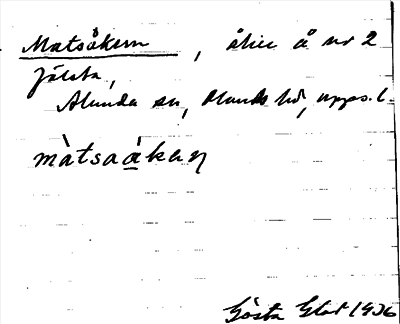 Matsåkern, åker å nr 2
Jälsta,
Alunda sn, Olands hd, Upps. l.
màtsaàkaṇ
Gösta Elat 1936